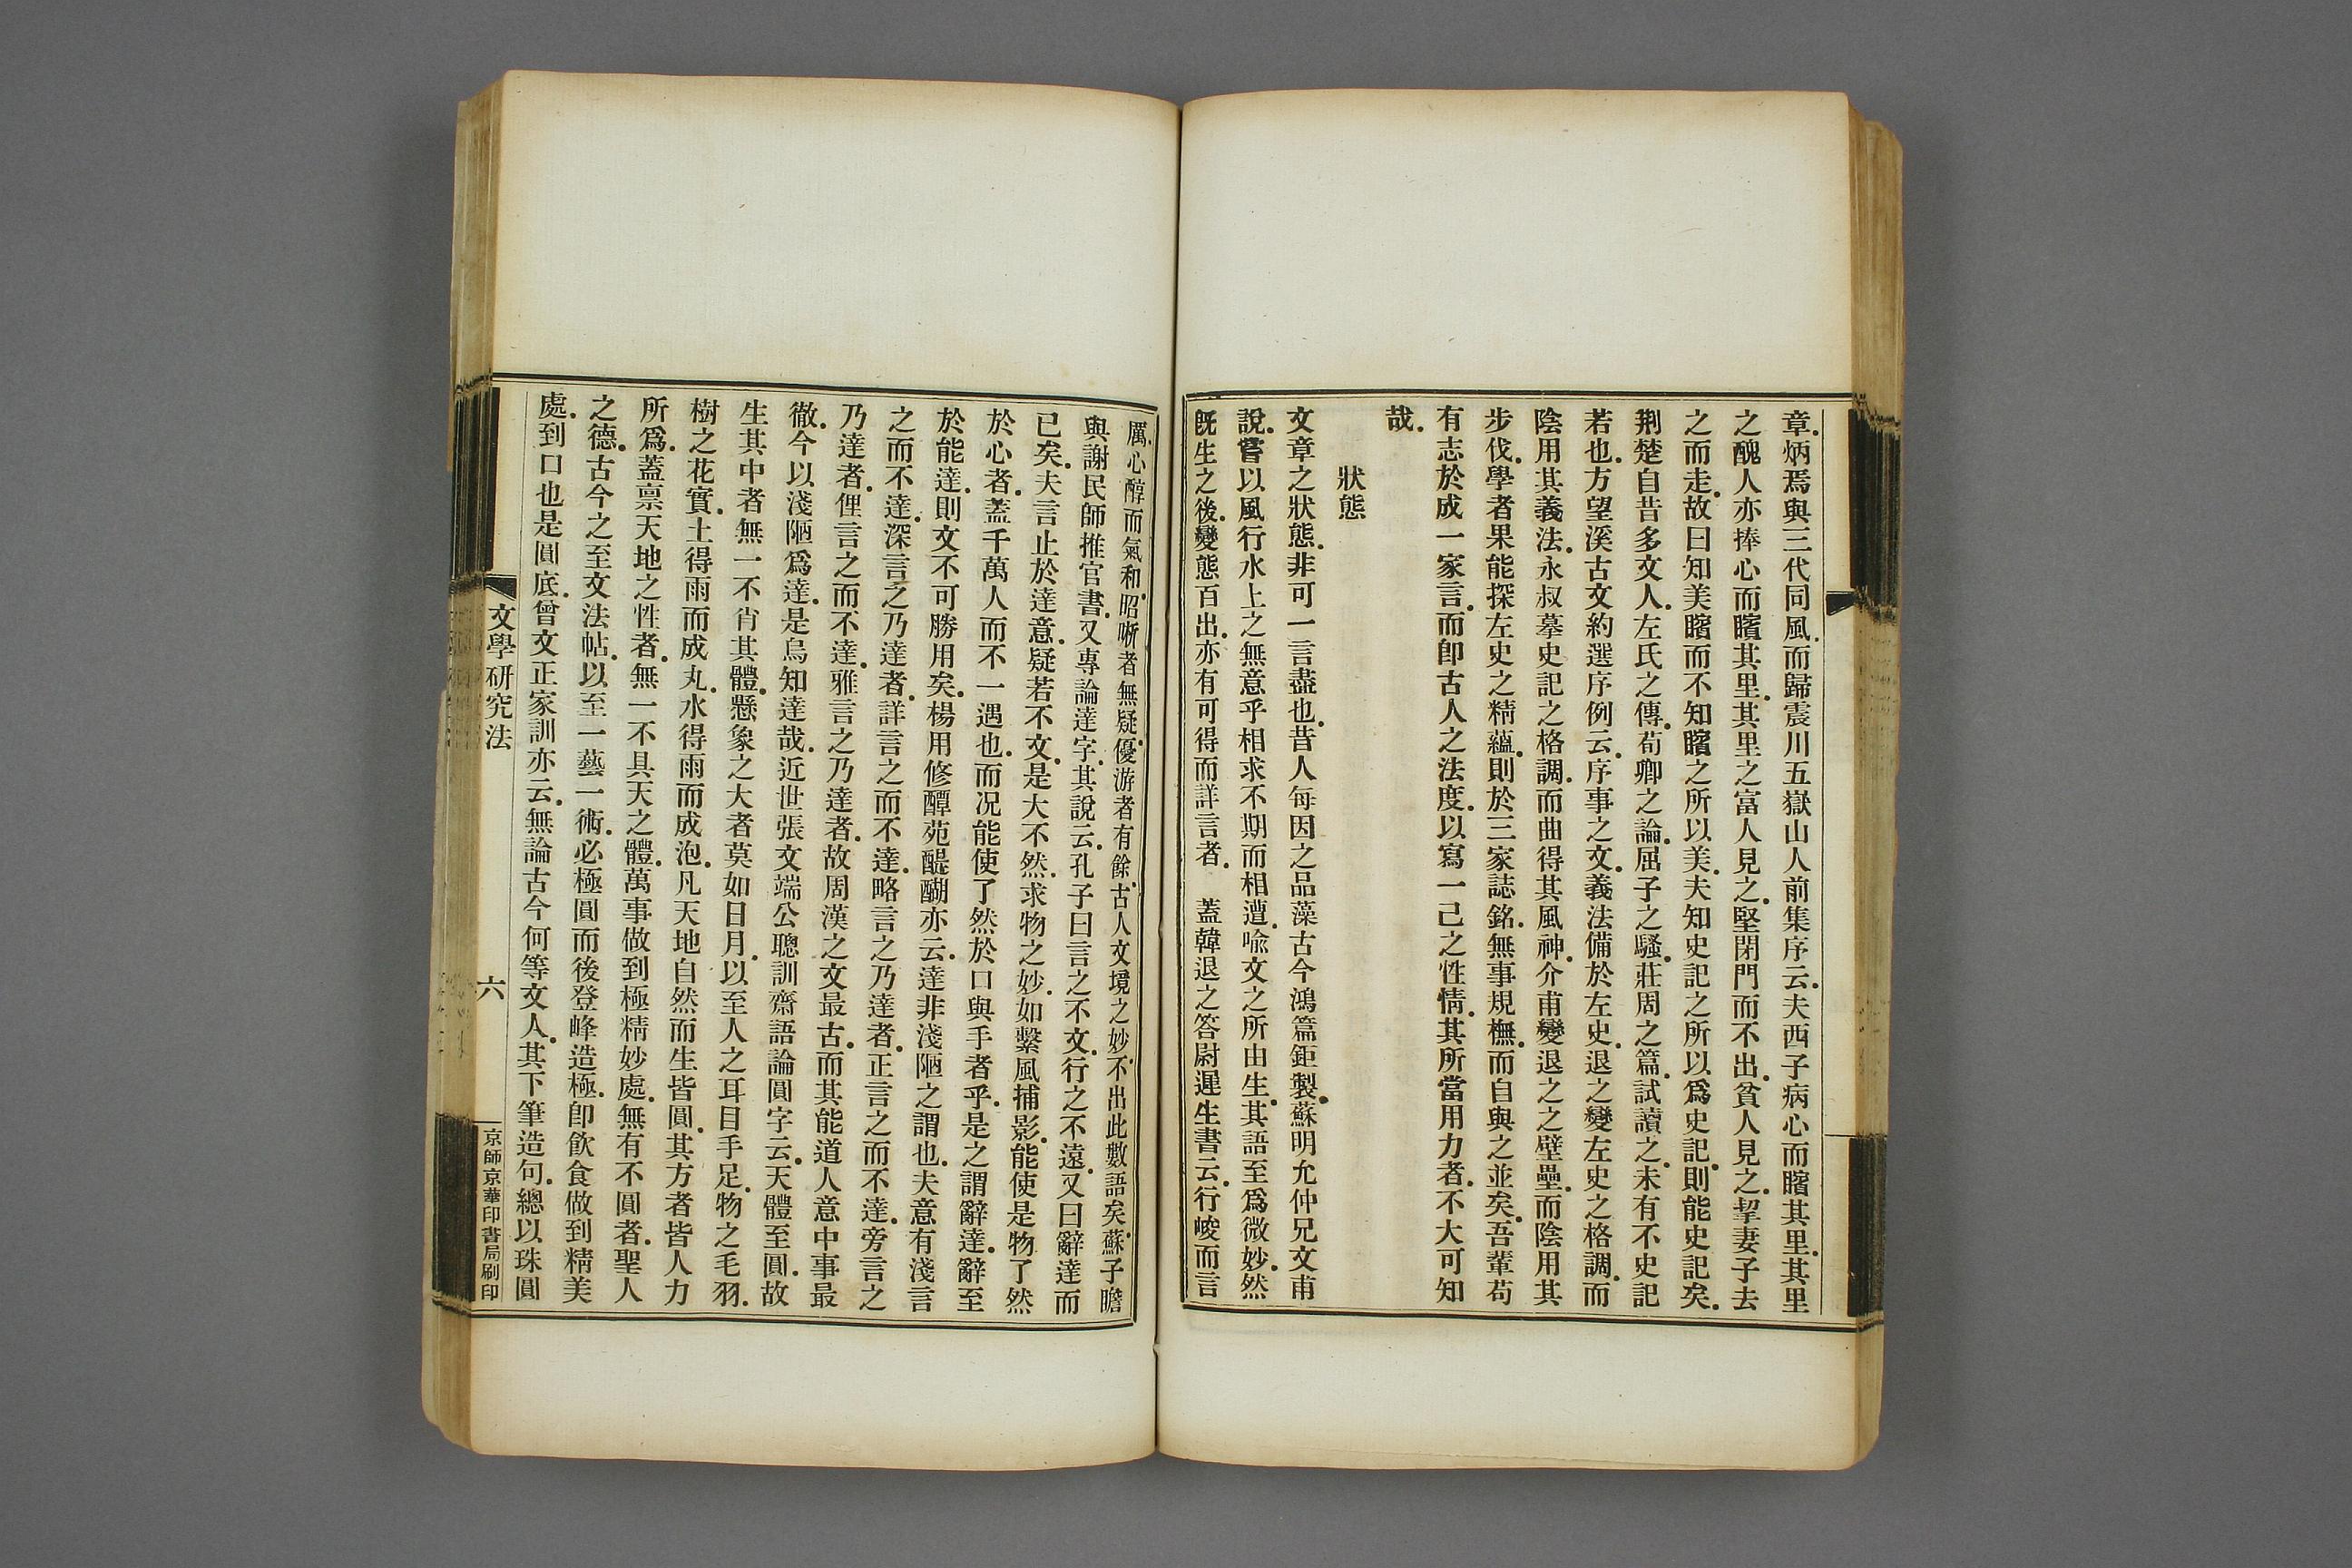 章.炳焉與三代同風.而歸震川五嶽山人前集序云.夫西子病心而矉其里.其里
之醜人亦捧心而矉其里.其里之富人見之.堅閉門而不出.貧人見之.挈妻子去
之而走.故曰知美矉而不知矉之所以美.夫知史記之所以爲史記.則能史記矣.
荆楚自昔多文人.左氏之傳.荀卿之論.屈子之騷.莊周之篇.試讀之.未有不史記
若也.方望溪古文約選序例云.序事之文.義法備於左史.退之變左史之格調.而
陰用其義法.永叔摹史記之格調.而曲得其風神.介甫變退之之壁壘.而陰用其
步伐.學者果能探左史之精蘊.則於三家誌銘.無事規橅.而自與之並矣.吾輩苟
有志於成一家言.而卽古人之法度.以寫一己之性情.其所當用力者.不大可知
哉.
狀態
文章之狀態.非可一言盡也.昔人每因之品藻古今鴻篇鉅製.蘇明允仲兄文甫
說.嘗以風行水上之無意乎相求不期而相遭.喩文之所由生.其語至爲微妙.然
旣生之後.變態百出.亦有可得而詳言者. 蓋韓退之答尉遲生書云.行峻而言
厲.心醇而氣和.昭晰者無疑.優游者有餘.古人文境之妙.不出此數語矣.蘇子瞻
與謝民師推官書.又專論達字.其說云.孔子曰言之不文.行之不遠.又曰辭達而
已矣.夫言止於達意.疑若不文.是大不然.求物之妙.如繫風捕影.能使是物了然
於心者.蓋千萬人而不一遇也.而況能使了然於口與手者乎.是之謂辭達.辭至
於能達.則文不可勝用矣.楊用修譚苑醍醐亦云.達非淺陋之謂也.夫意有淺言
之而不達.深言之乃達者.詳言之而不達.略言之乃達者.正言之而不達.旁言之
乃達者.俚言之而不達.雅言之乃達者.故周漢之文最古.而其能道人意中事最
徹.今以淺陋爲達.是烏知達哉.近世張文端公聰訓齋語論圓字云.天體至圓.故
生其中者無一不肖其體.懸象之大者莫如日月.以至人之耳目手足.物之毛羽.
樹之花實.土得雨而成丸.水得雨而成泡.凡天地自然而生皆圓.其方者皆人力
所爲.蓋禀天地之性者.無一不具天之體.萬事做到極精妙處.無有不圓者.聖人
之德.古今之至文法帖.以至一藝一術.必極圓而後登峰造極.卽飲食做到精美
處.到口也是圓底.曾文正家訓亦云.無論古今何等文人.其下筆造句.總以珠圓
文學研究法
六
京師京華印書局刷印